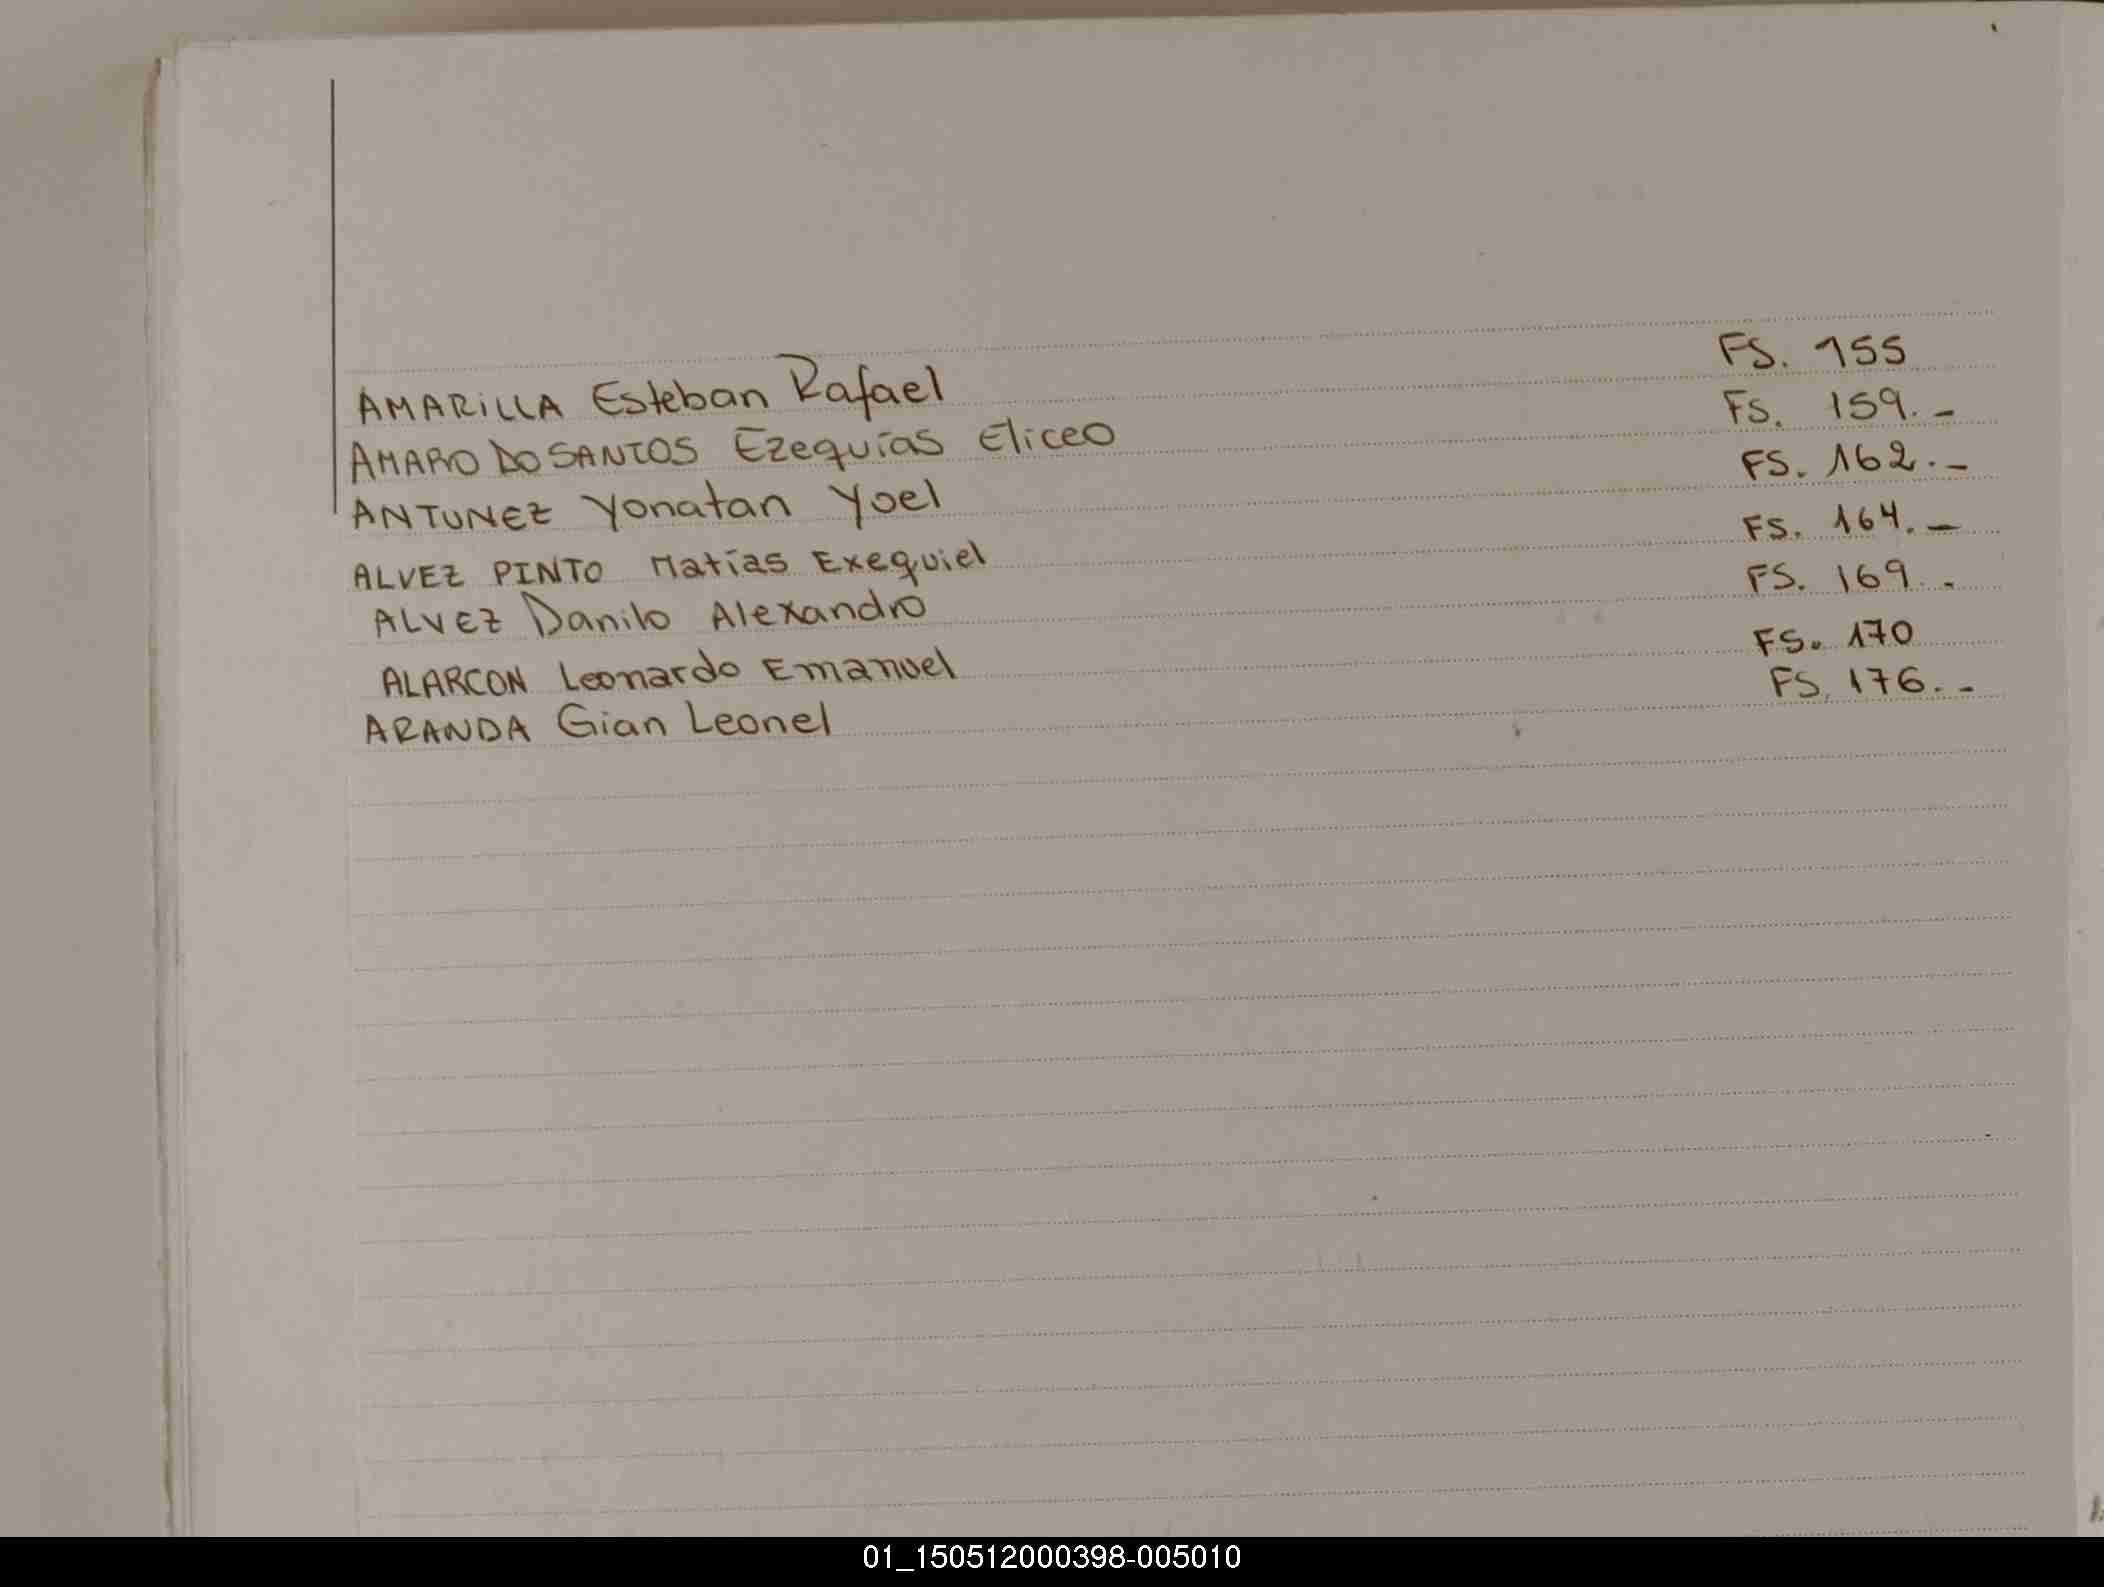 AMARILLA Esteban Rafael FS. 155
AMARO DO SANTOS Ezequías Eliceo FS. 159.-
ANTUNEZ Yonatan Yoel FS. 162.-
ALVEZ PINTO Matías Exequiel FS. 164.-
ALVEZ Danilo Alexandro FS. 169.-
ALARCON Leonardo Emanuel FS. 170
ARANDA Gian Leonel FS. 176.-
01_150512000398-005010